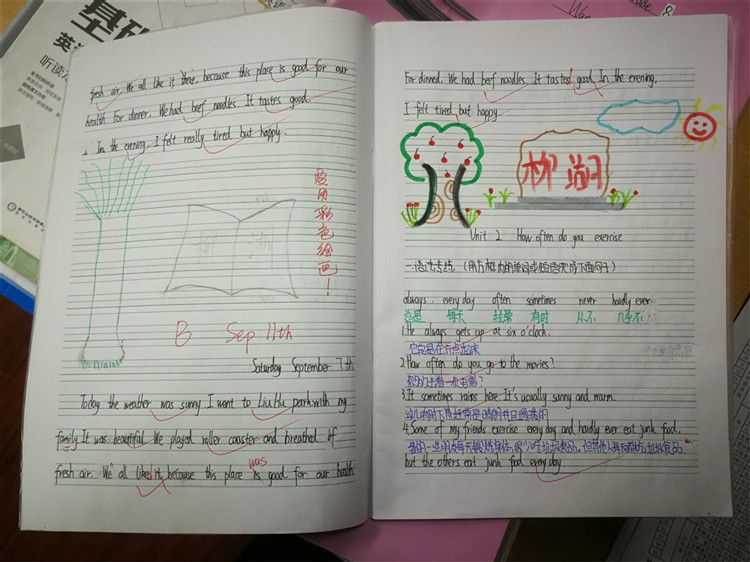 基础
英
听读
fresh air. We all like it there, because this place is good for our
health for dinner. We had beef noodles. It tastes good.
In the evening, I felt really tired but happy.
要用彩色绘画！
B Sep 11th
Saturday September 7th
Today the weather was sunny I went to Liu Hu park with my
family. It was beautiful. We played roller coaster and breathed of
was
fresh air. We all liked it because this place is good for our health
For dinned. We had beef noodles. It tasted good. In the evening,
I felt tired but happy.
柳湖
Unit 2 How often do you exercise
always every day often sometimes never hardly ever
总是 每天 经常 有时 从不 几乎不
1. He always gets up at six o'clock.
2. How often do you go to the movies?
3. It sometimes rains here. It's usually sunny and warm.
4. Some of my friends exercise every day and hardly ever eat junk food.
but the others eat junk food every day